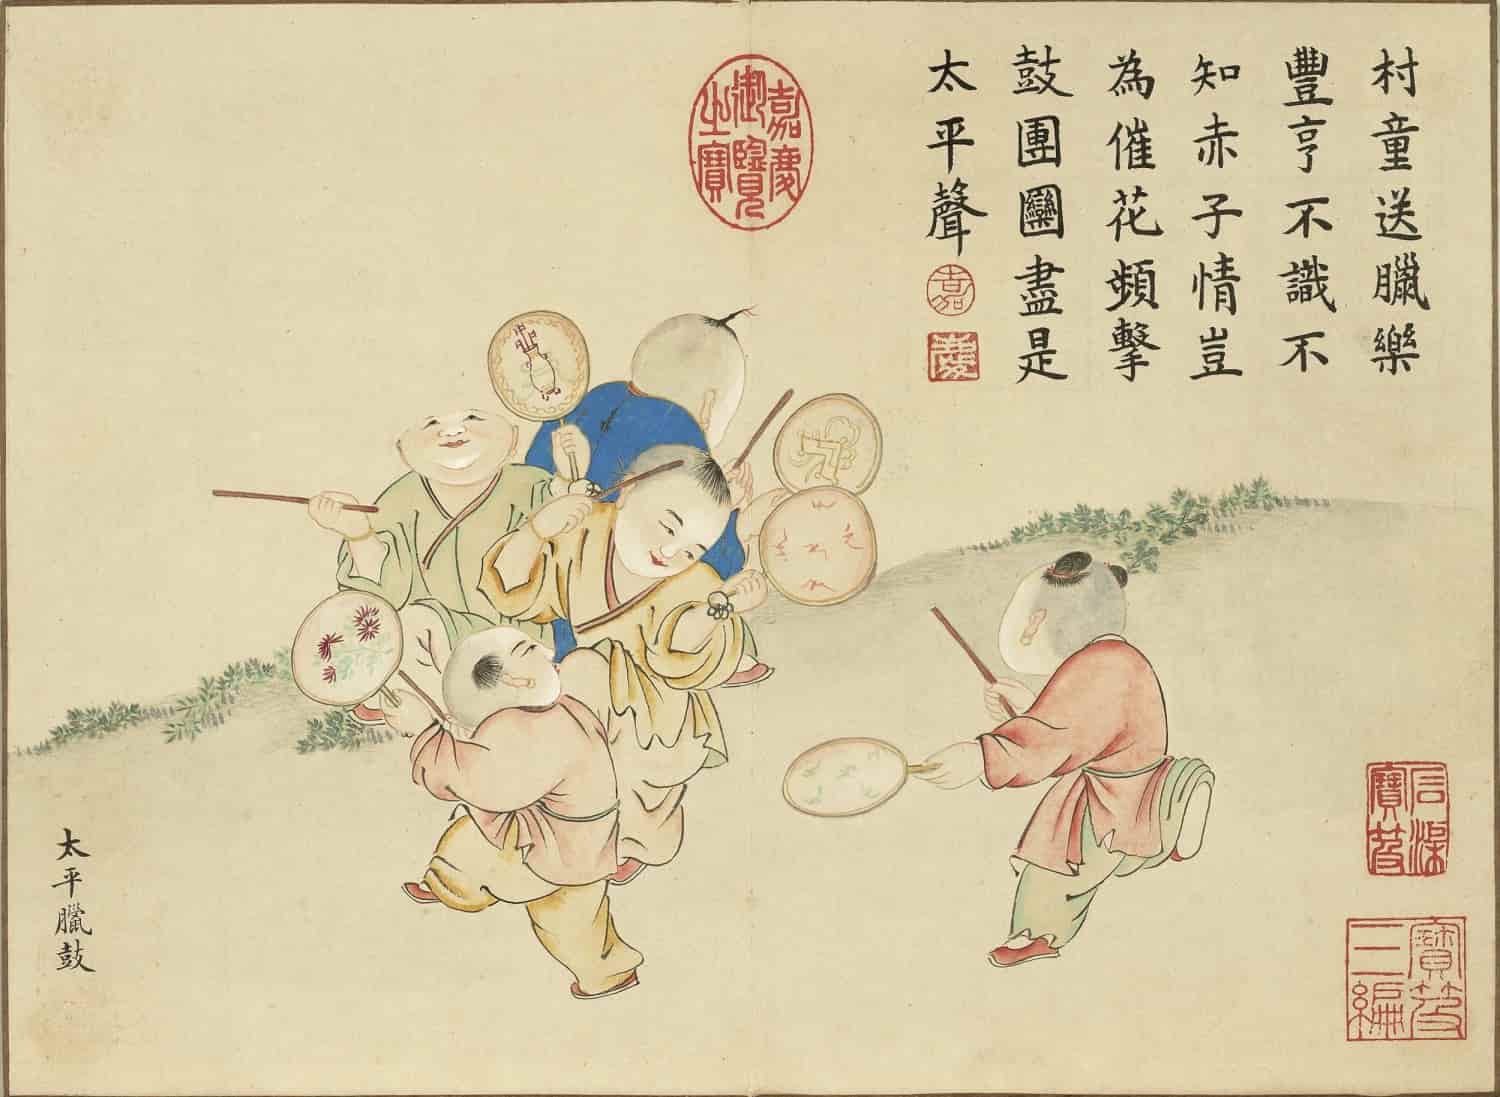 村童送臘樂
豐亨不識不
知赤子情豈
為催花頻擊
鼓團圞盡是
太平聲
嘉
慶
嘉慶御覽之寶
太平臘鼓
寶笈三編